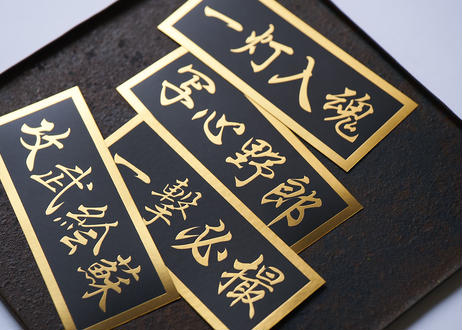 一灯入魂
写心野郎
一撃必撮
攻武絵蘇